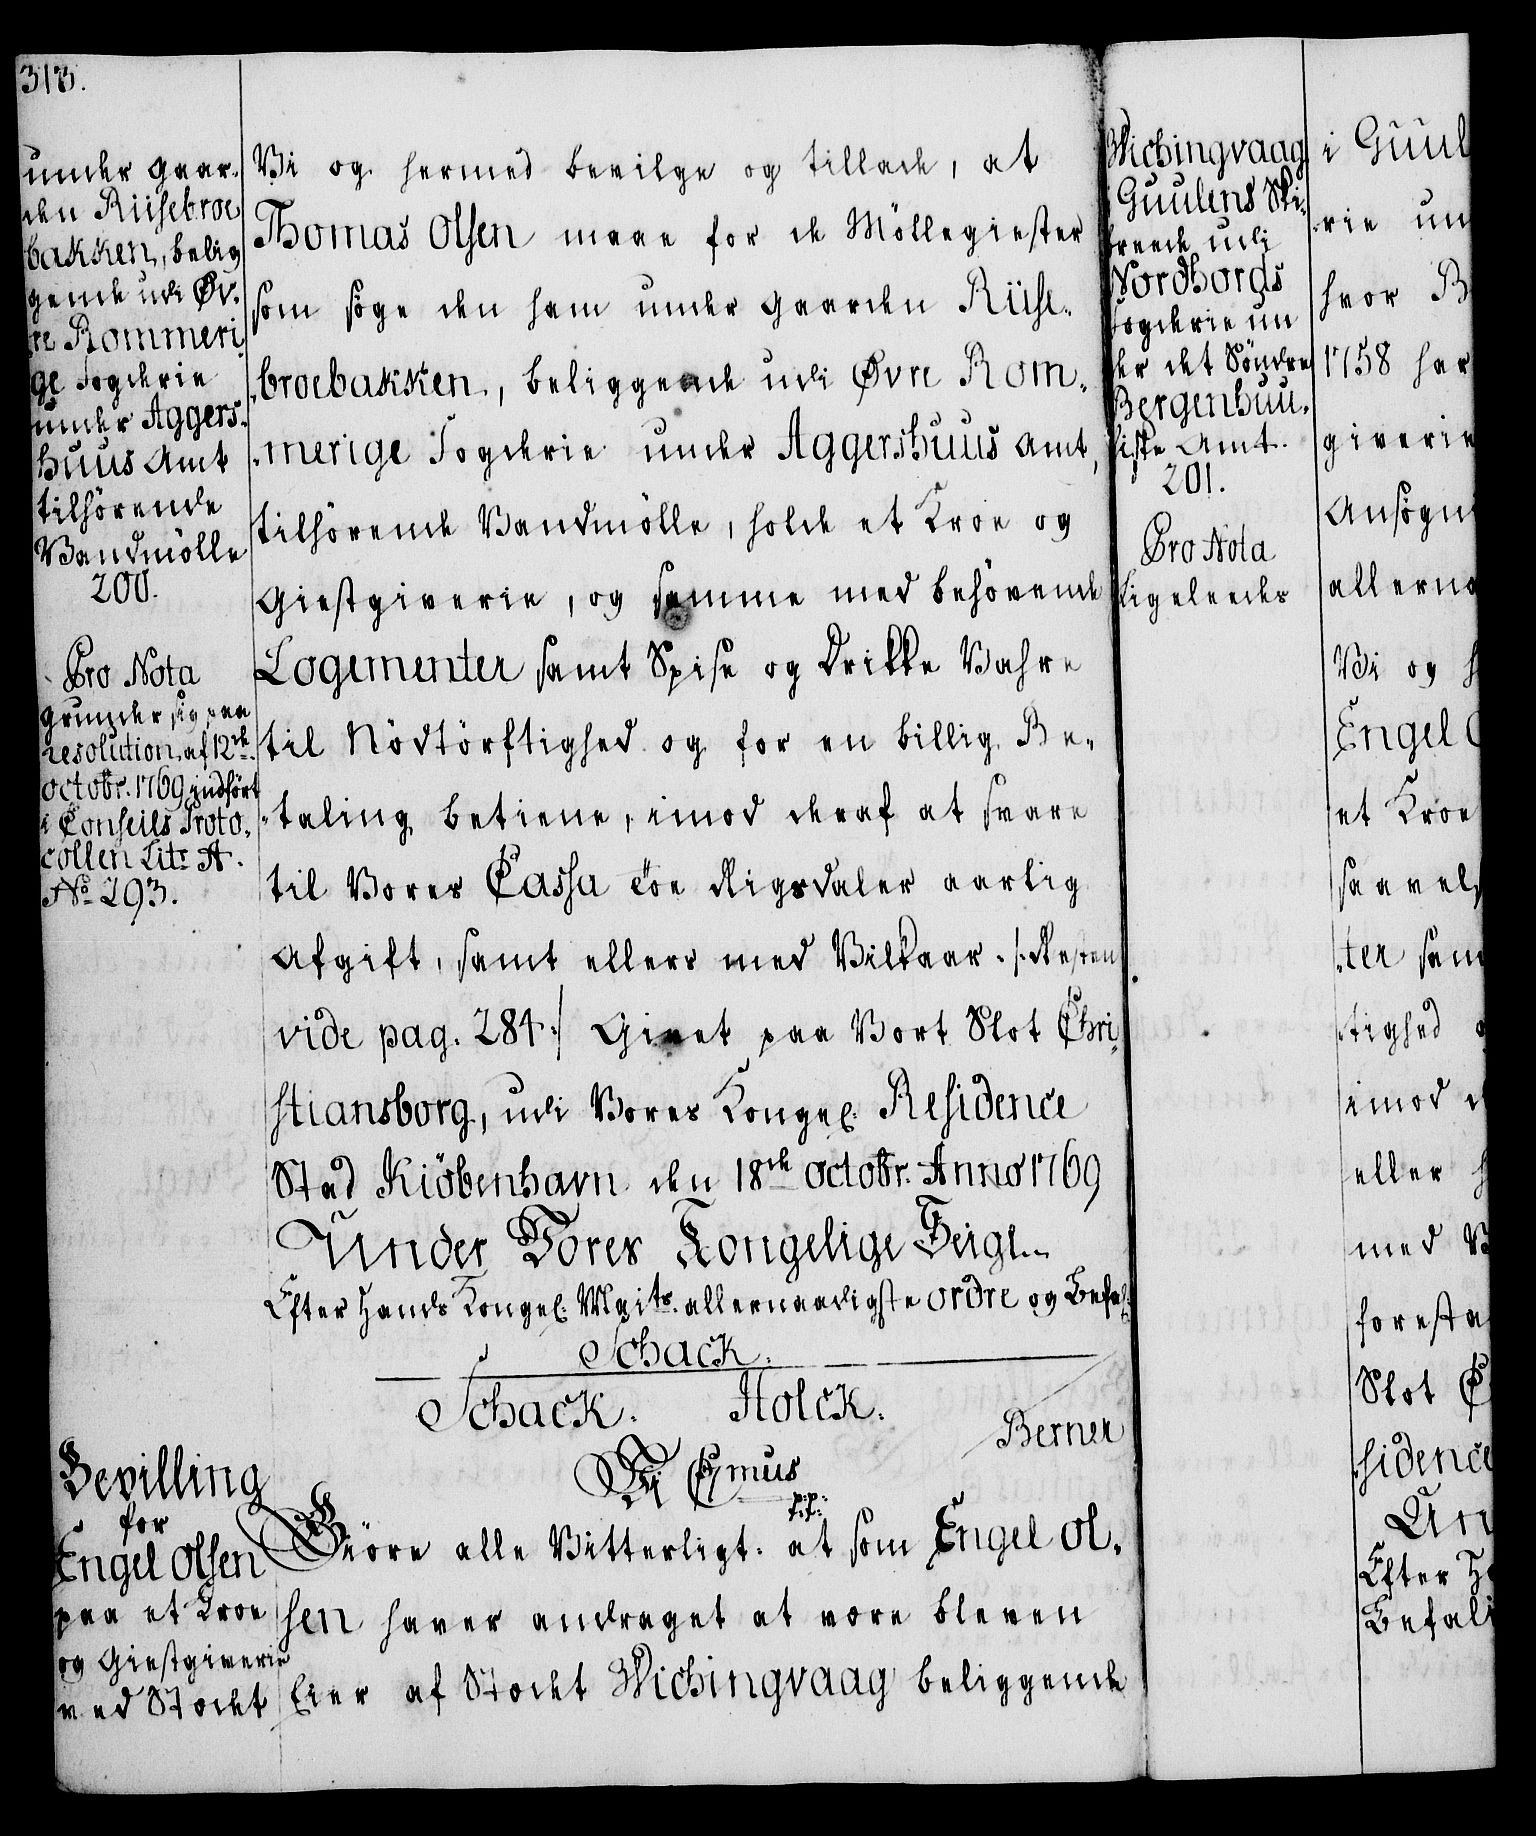 313.
under Gaar-
den Riisebroe
bakken, belig
gende udi Øv-
re Rommeri
ge Fogderie
under Aggers-
huus Amt
tilhörende
Vandmölle
200.
Pro Nota
grunder sig paa
resolution af 12te
octobr. 1769 indfört
i Conseils Proto-
collen Litr. A.
No. 293.
Vi og hermed bevilge og tillade, at
Thomas Olsen maae for de Möllegiester
som söge den ham under Gaarden Riise-
broebakken, beliggende udi Øvre Rom-
merige Fogderie under Aggershuus Amt,
tilhörende Vandmölle, holde et Kroe og
Giestgiverie, og samme med behövende
Logementer samt Spise og Drikke Vahre
til Nödtörftighed og for en billig Be-
taling betiene, imod deraf at svare
til Vores Cassa toe Rigsdaler aarlig
Afgift, samt ellers med Vilkaar. /: Resten
vide pag. 284 :/ Givet paa Vort Slot Chri-
stiansborg, udi Vores Kongel: Residence
Stad Kiöbenhavn den 18de octobr. Anno 1769
Under Vores Kongelige Seigl.
Efter Hands Kongel: Maits. allernaadigste ordre og Befal:
Schack.
Schack. Holck.
Berner
Bevilling
for
Engel Olsen
paa et Kroe
og Giestgiverie
ved Stædet
Vi C7mus
p.p:
Giöre alle Vitterligt: at som Engel Ol-
sen haver andraget at være bleven
Eier af Stædet Wichingvaag beliggende
Wichingvaag
Guulens Ski-
breede udi
Nordhords
Fogderie un
der det Söndre
Bergenhuu-
siske Amt.
201.
Pro Nota
Ligeleedes
i Guul
rie un
hvor B
1758 har
giverie
Ansögni
allerna
Vi og h
Engel O
et Kroe
saavel
ter sam
tighed o
imod d
eller h
med V
foresta
Slot C
sidence
Un
Efter H
Befali